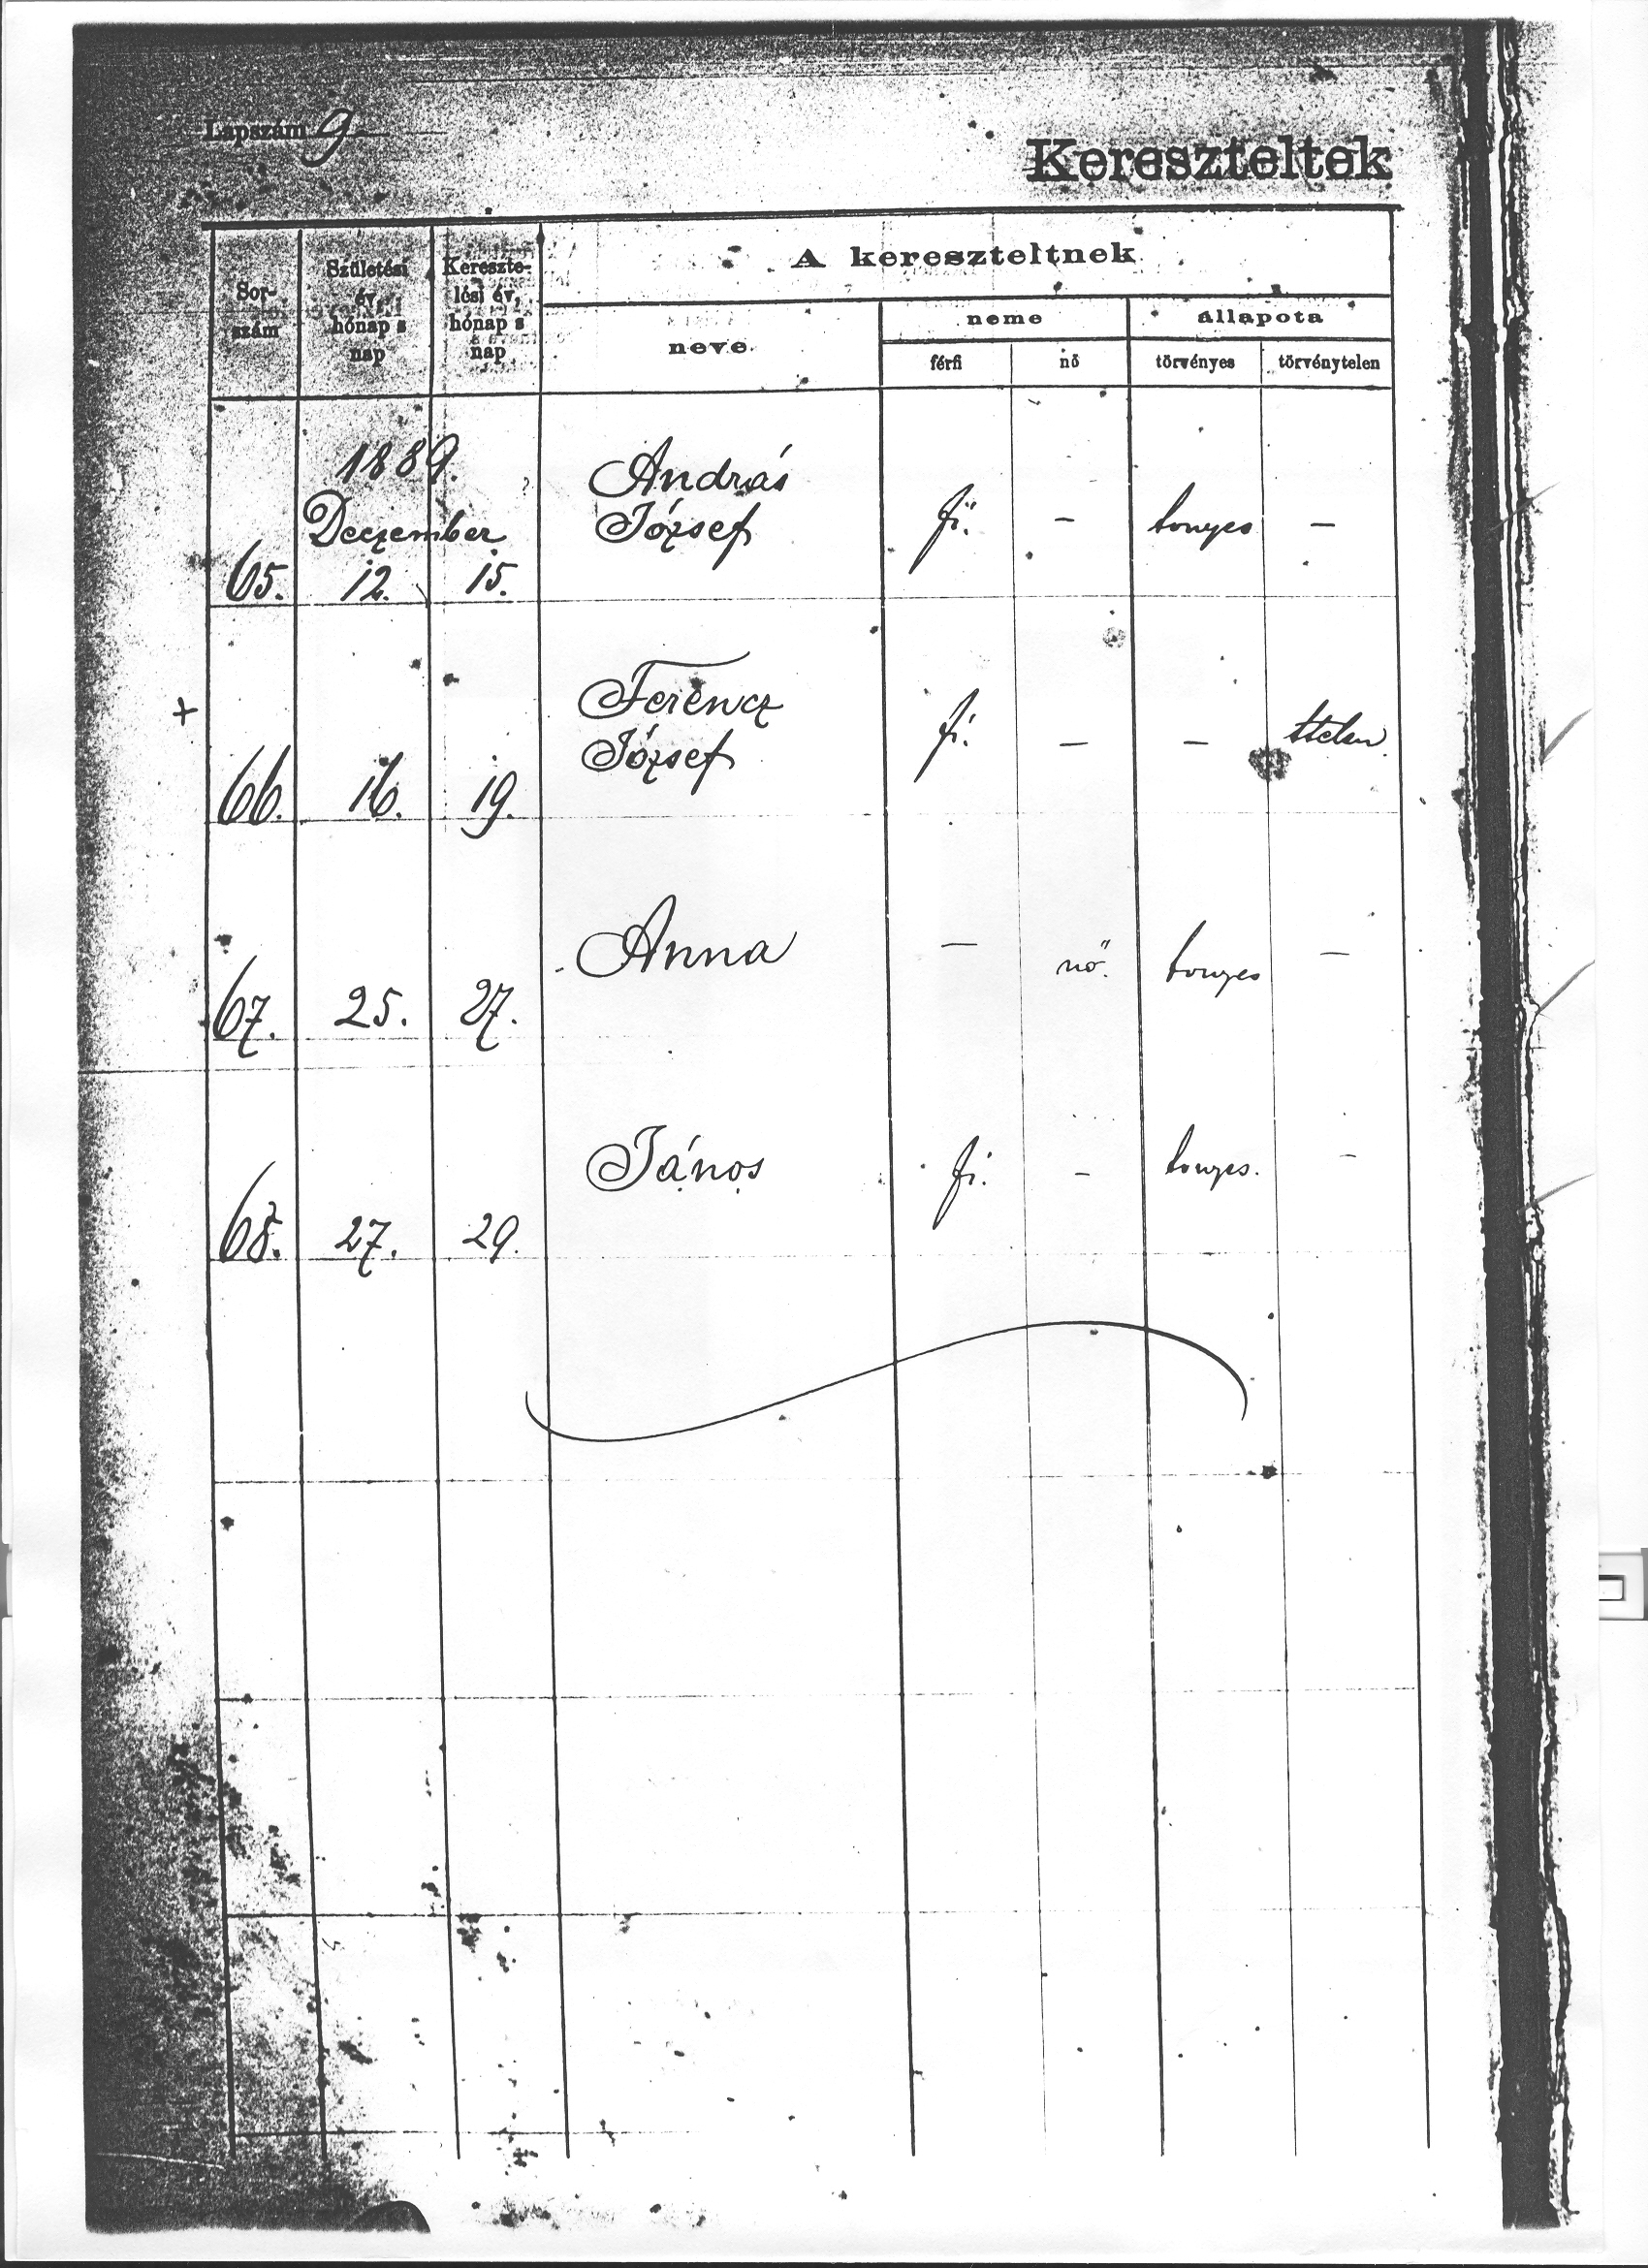 Lapszám 9.
Kereszteltek
Sor-
szám
Születési
év,
hónap s
nap
Kereszte-
lési év,
hónap s
nap
A kereszteltnek
neve
neme
állapota
férfi
nő
törvényes
törvénytelen
1889.
Deczember
65. 12. 15. András
József fi. – tvnyes –
+
66. 16. 19. Ferencz
József fi. – – ttelen
67. 25. 27. Anna – nő. tvnyes –
68. 27. 29. János fi. – tvnyes. –